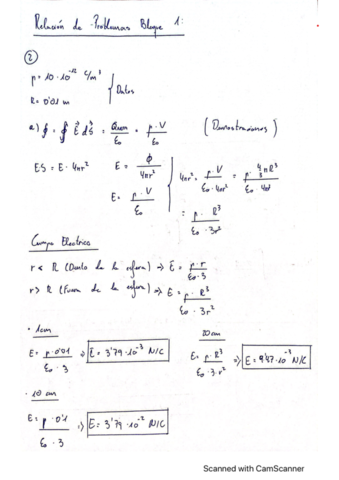 Relación de Problemas Bloque 1:
②
ρ = 10·10⁻¹² C/m³
R = 0'01 m
Datos
a) ϕ = ∮ E⃗ dS⃗ = Qenc/ε₀ = ρ·V/ε₀ (Demostraciones)
ES = E·4πr² E = ϕ/4πr² 4πr² = ρ·V/ε₀·4πr² = ρ·4/3πR³/ε₀·4π
E = ρ·V/ε₀ = ρ·R³/ε₀·3r²
Campo Electrico
r < R (Dentro de la esfera) ⇒ E = ρ·r/ε₀·3
r > R (Fuera de la esfera) ⇒ E = ρ·R³/ε₀·3r²
· 1cm 20 cm
E = ρ·0'01/ε₀·3 ⇒ E = 3'79·10⁻³ N/C E = ρ·R³/ε₀·3·r² ⇒ E = 9'47·10⁻³ N/C
· 10 cm
E = ρ·0'1/ε₀·3 ⇒ E = 3'79·10⁻² N/C
Scanned with CamScanner